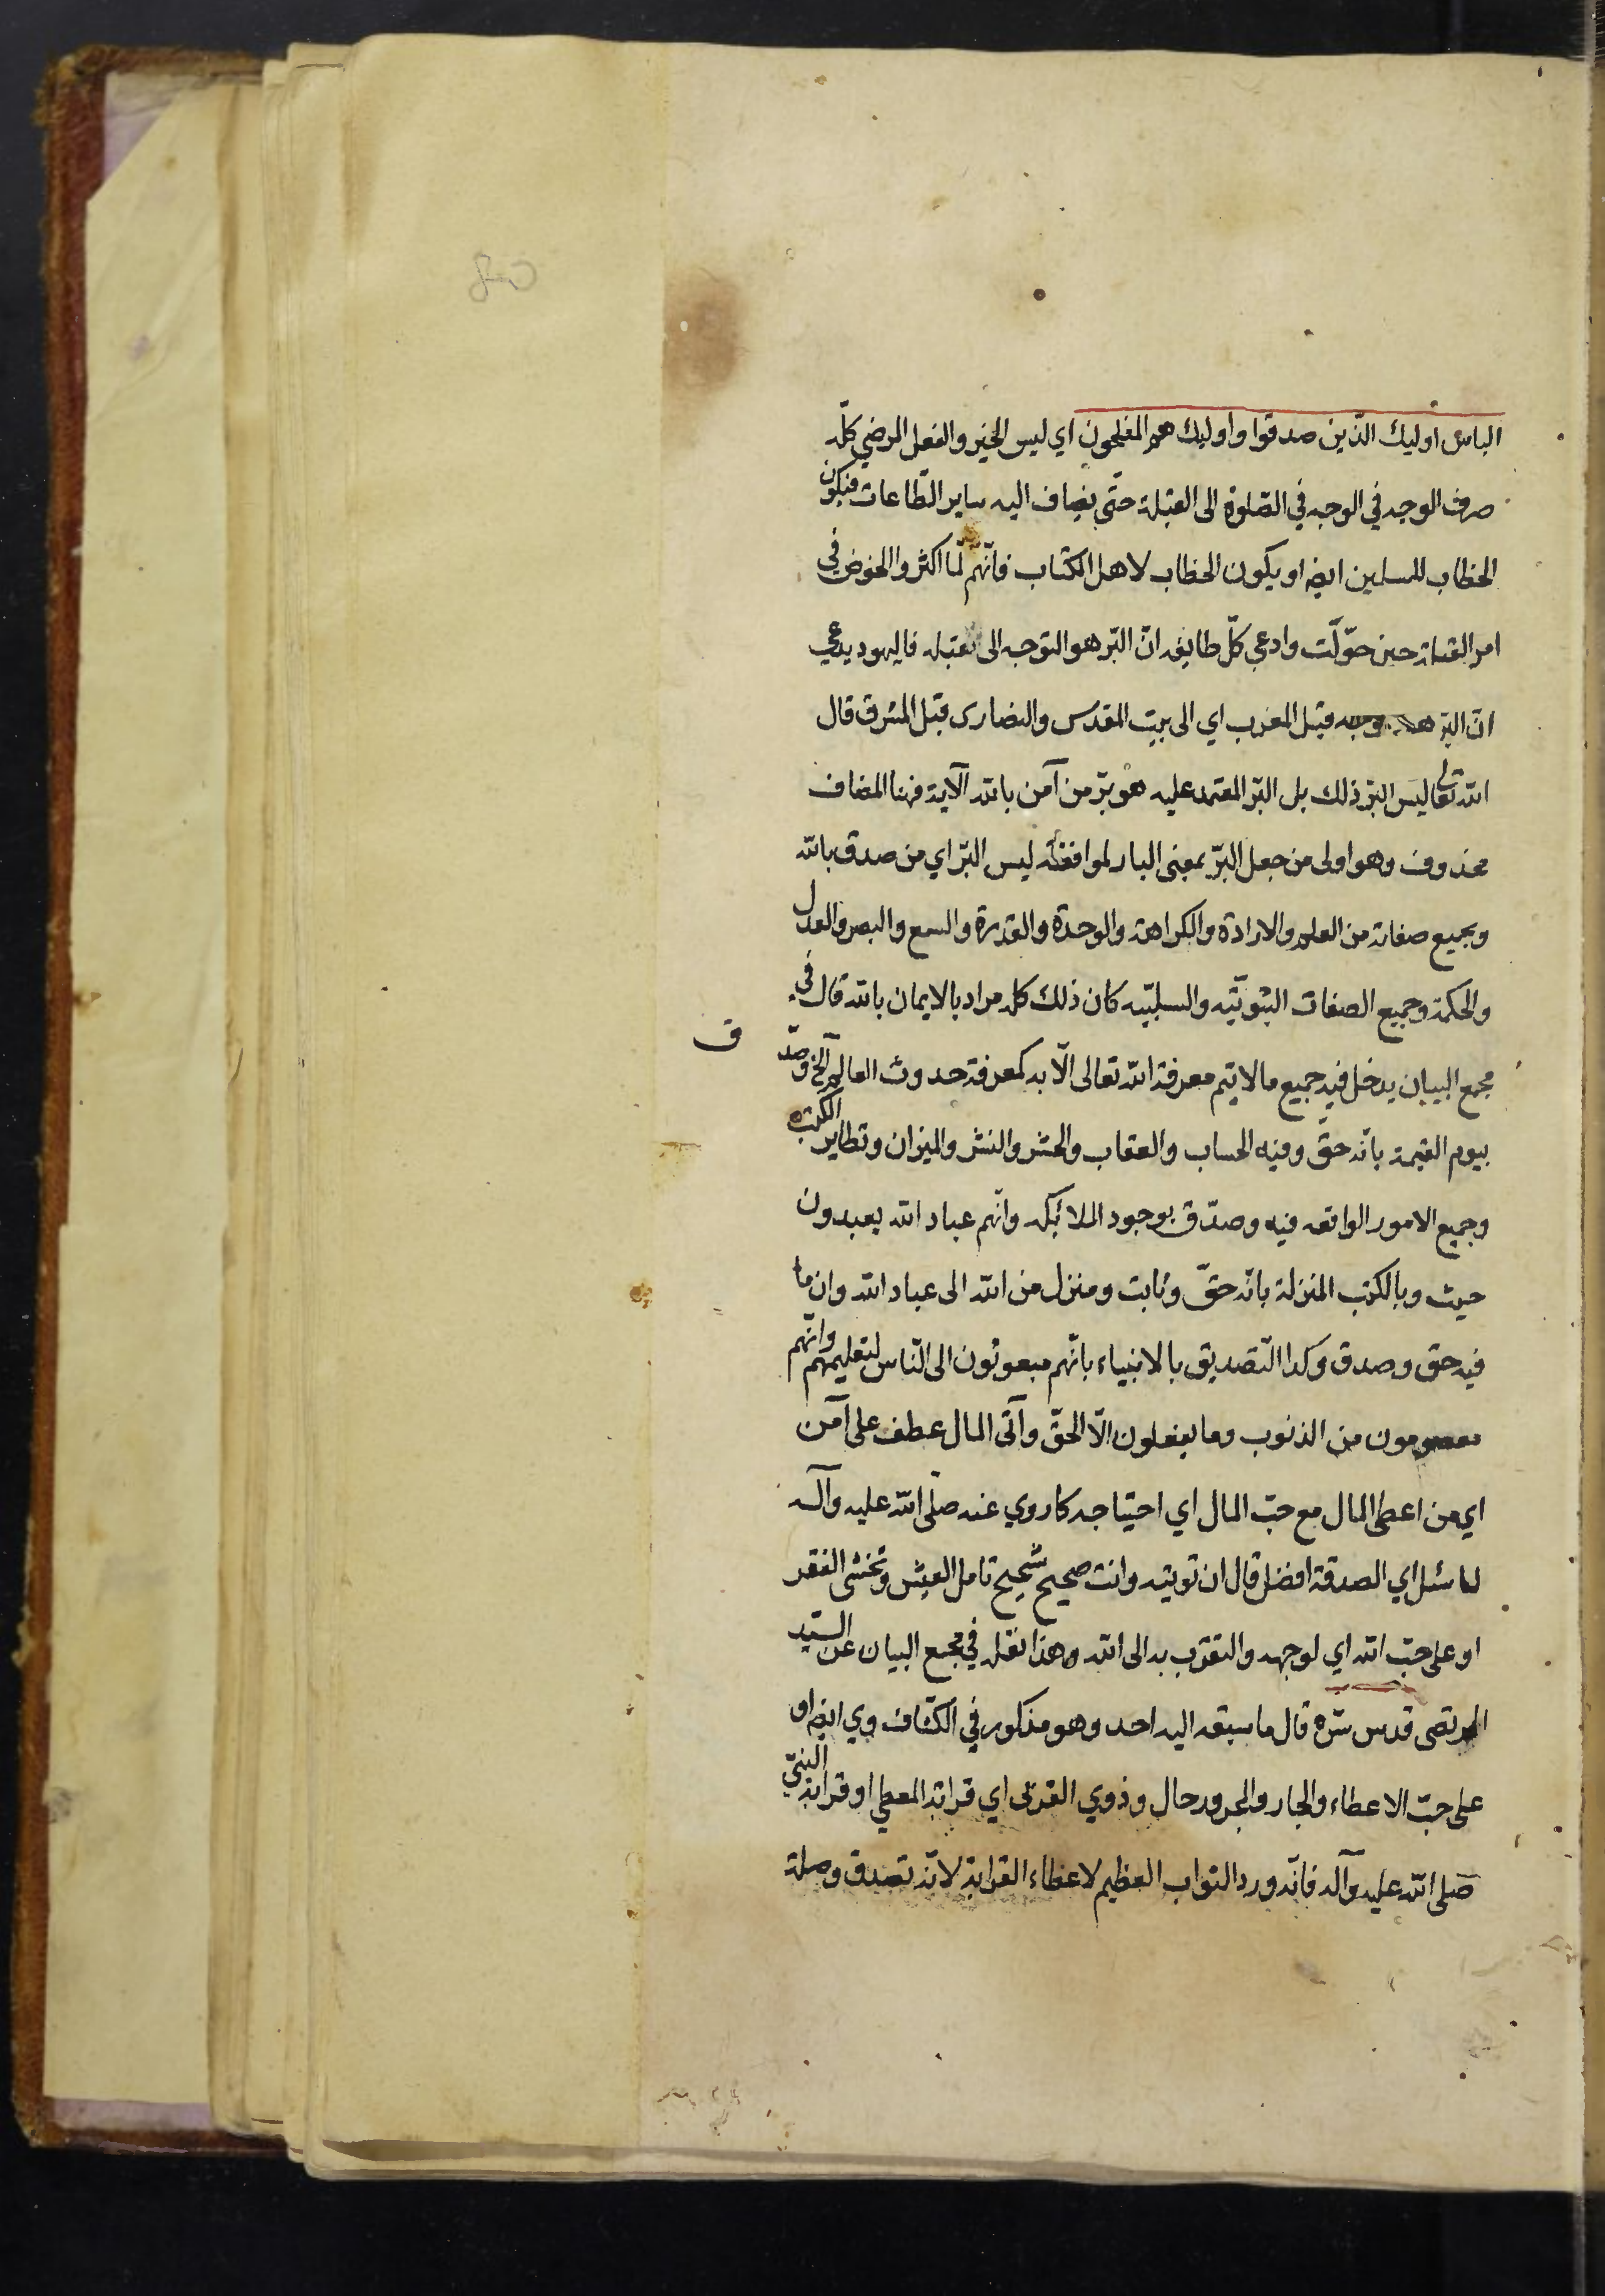 الباس اوليك الذين صدقوا واوليك هم المفلحون اي ليس الخير والفعل المرضي كلّه
صرف الوجه في الوجه في الصّلوة الى القبلة حتّى يضاف اليه ساير الطّاعات فيكون
الخطاب للمسلمين ايضا او يكون الخطاب لاهل الكتاب فانّهم لمّا اكثروا الخوض في
امر القبلة حين حوّلت وادعى كلّ طايفه انّ البّر هو التوجه الى قبله فاليهود يدعي
انّ البّر هو توجه قبل المغرب اي الى بيت المقدس والنصارى قبل المشرق قال
الله تعالى ليس البرّ ذلك بل البّر المعتمد عليه هو برّ من آمن بالله الآية فهنا المضاف
محذوف وهو اولى من جعل البرّ بمعنى البار لموافقته ليس البّر اي من صدق بالله
وبجميع صفاته من العلم والارادة والكراهة والوحدة والقدرة والسمع والبصر والعدل
والحكمة وجميع الصفات الثبوتيّه والسلبيّه كان ذلك كله مراد بالايمان بالله قال في
مجمع البيان يدخل فيه جميع ما لا يتم معرفة الله تعالى الّا به كمعرفة حدوث العالم الخ وصدّ
ق
بيوم القيمة بانّه حقّ وفيه الحساب والعقاب والحشر والنشر والميزان وتطاير الكتب
وجميع الامور الواقعه فيه وصدّق بوجود الملائكه وانّهم عباد الله يعبدون
حيث وبالكتب المنزلة بانّه حقّ وثابت ومنزل من الله الى عباد الله وان ما
فيه حق وصدق وكذا التّصديق بالانبياء بانّهم مبعوثون الى النّاس لتعليمهم وانّهم
معصومون من الذنوب وما يفعلون الّا الحقّ وآتى المال عطف على آمن
اي من اعطى المال مع حبّ المال اي احتياجه كما روي عنه صلّى الله عليه وآله
لما سئل اي الصدقة افضل قال ان تؤتيه وانت صحيح شحيح تامل العيش وتخشى الفقر
او على حبّ الله اي لوجهه والتقرّب به الى الله وهذا نقله في مجمع البيان عن السّيد
المرتضى قدس سّره قال ما سبقه اليه احد وهو مذكور في الكشاف وي ايضا او
على حبّ الاعطاء والجار والمجرور حال وذوي القربى اي قرابة المعطي او قرابة النبيّ
صلى الله عليه وآله فانّه ورد الثواب العظيم لاعطاء القرابة لانّه تصدق وصلة